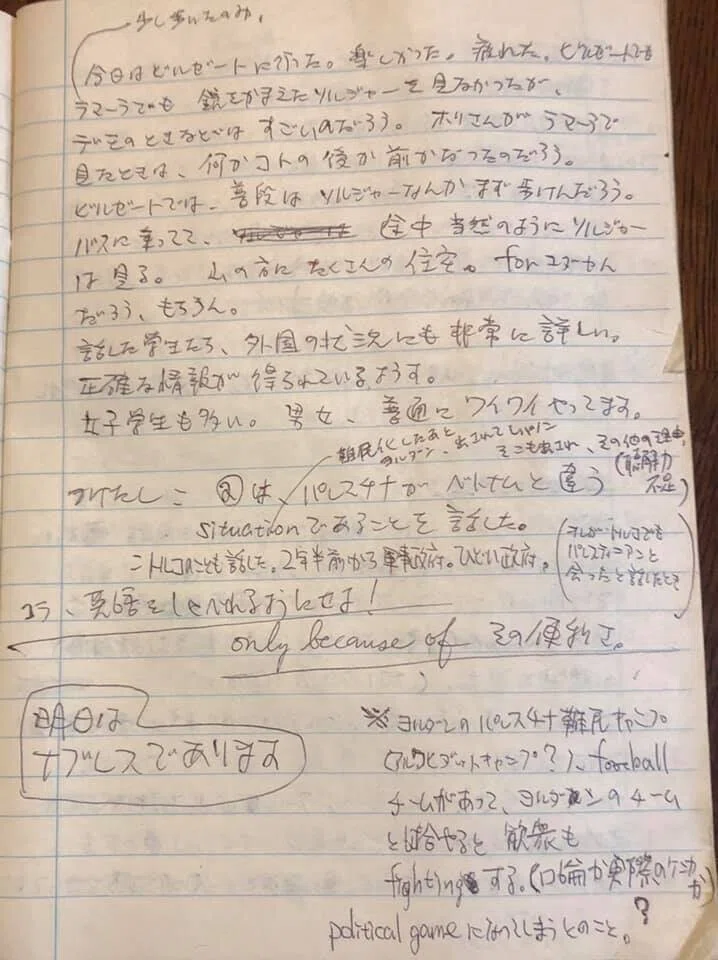 少し歩いたのみ。
今日はビルゼートに行った。楽しかった。疲れた。ビルゼートでも
ラマーラでも 銃をかまえたソルジャーを見なかったが、
デモのときなどは すごいのだろう。ホリさんが ラマーラで
見たときは、何かコトの後か前かだったのだろう。
ビルゼートでは、普段は ソルジャーなんか まず歩けんだろう。
バスに乗ってて、 途中 当然のように ソルジャー
は見る。 山の方に たくさんの住宅。for ユダヤ人
だろう、もちろん。
話した学生たち、外国の状況にも 非常に 詳しい。
正確な情報が 得られているようす。
女子学生も多い。男女、普通に ワイワイ やってます。
難民化したあと
ヨルダン、出されて
そこも出され、その他の理由。
(聴解力
不足)
②は、パレスチナが ベトナムと 違う
situationであることを 話した。
トルコのことも話した。2年半前から 軍事政府。ひどい政府。
(オレが トルコでも
パレスティニアンと
会ったと 話したとき
コラ、英語をしゃべれるようにせよ!
only because of その便利さ。
明日は
ナブルスであります
※ヨルダンの パレスチナ 難民キャンプ
キャンプ?)、football
チームがあって、ヨルダンのチーム
と試合やると 観衆も
fighting する。(口論か実際のケンカか
?
political game になってしまうとのこと。